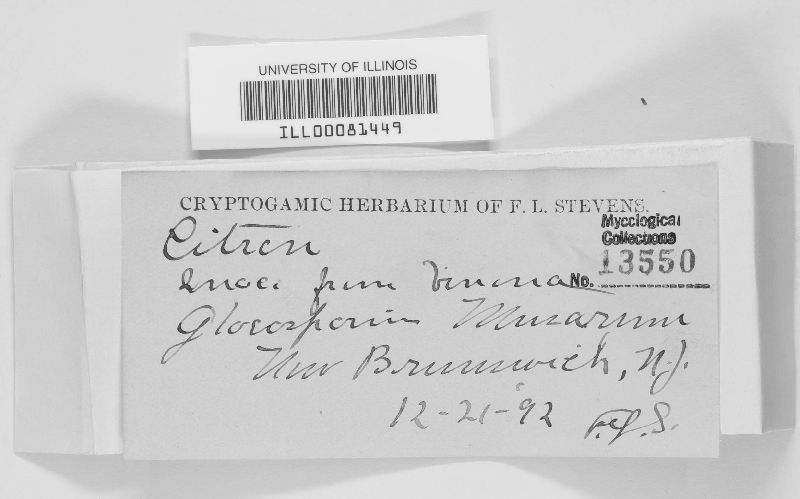 UNIVERSITY OF ILLINOIS
ILL00081449
CRYPTOGAMIC HERBARIUM OF F. L. STEVENS.
Mycological
Collections
No. 13550
Citron
from
Gloeosporium Musarum
New Brunswick, N.J.
12-21-'92 F.L.S.